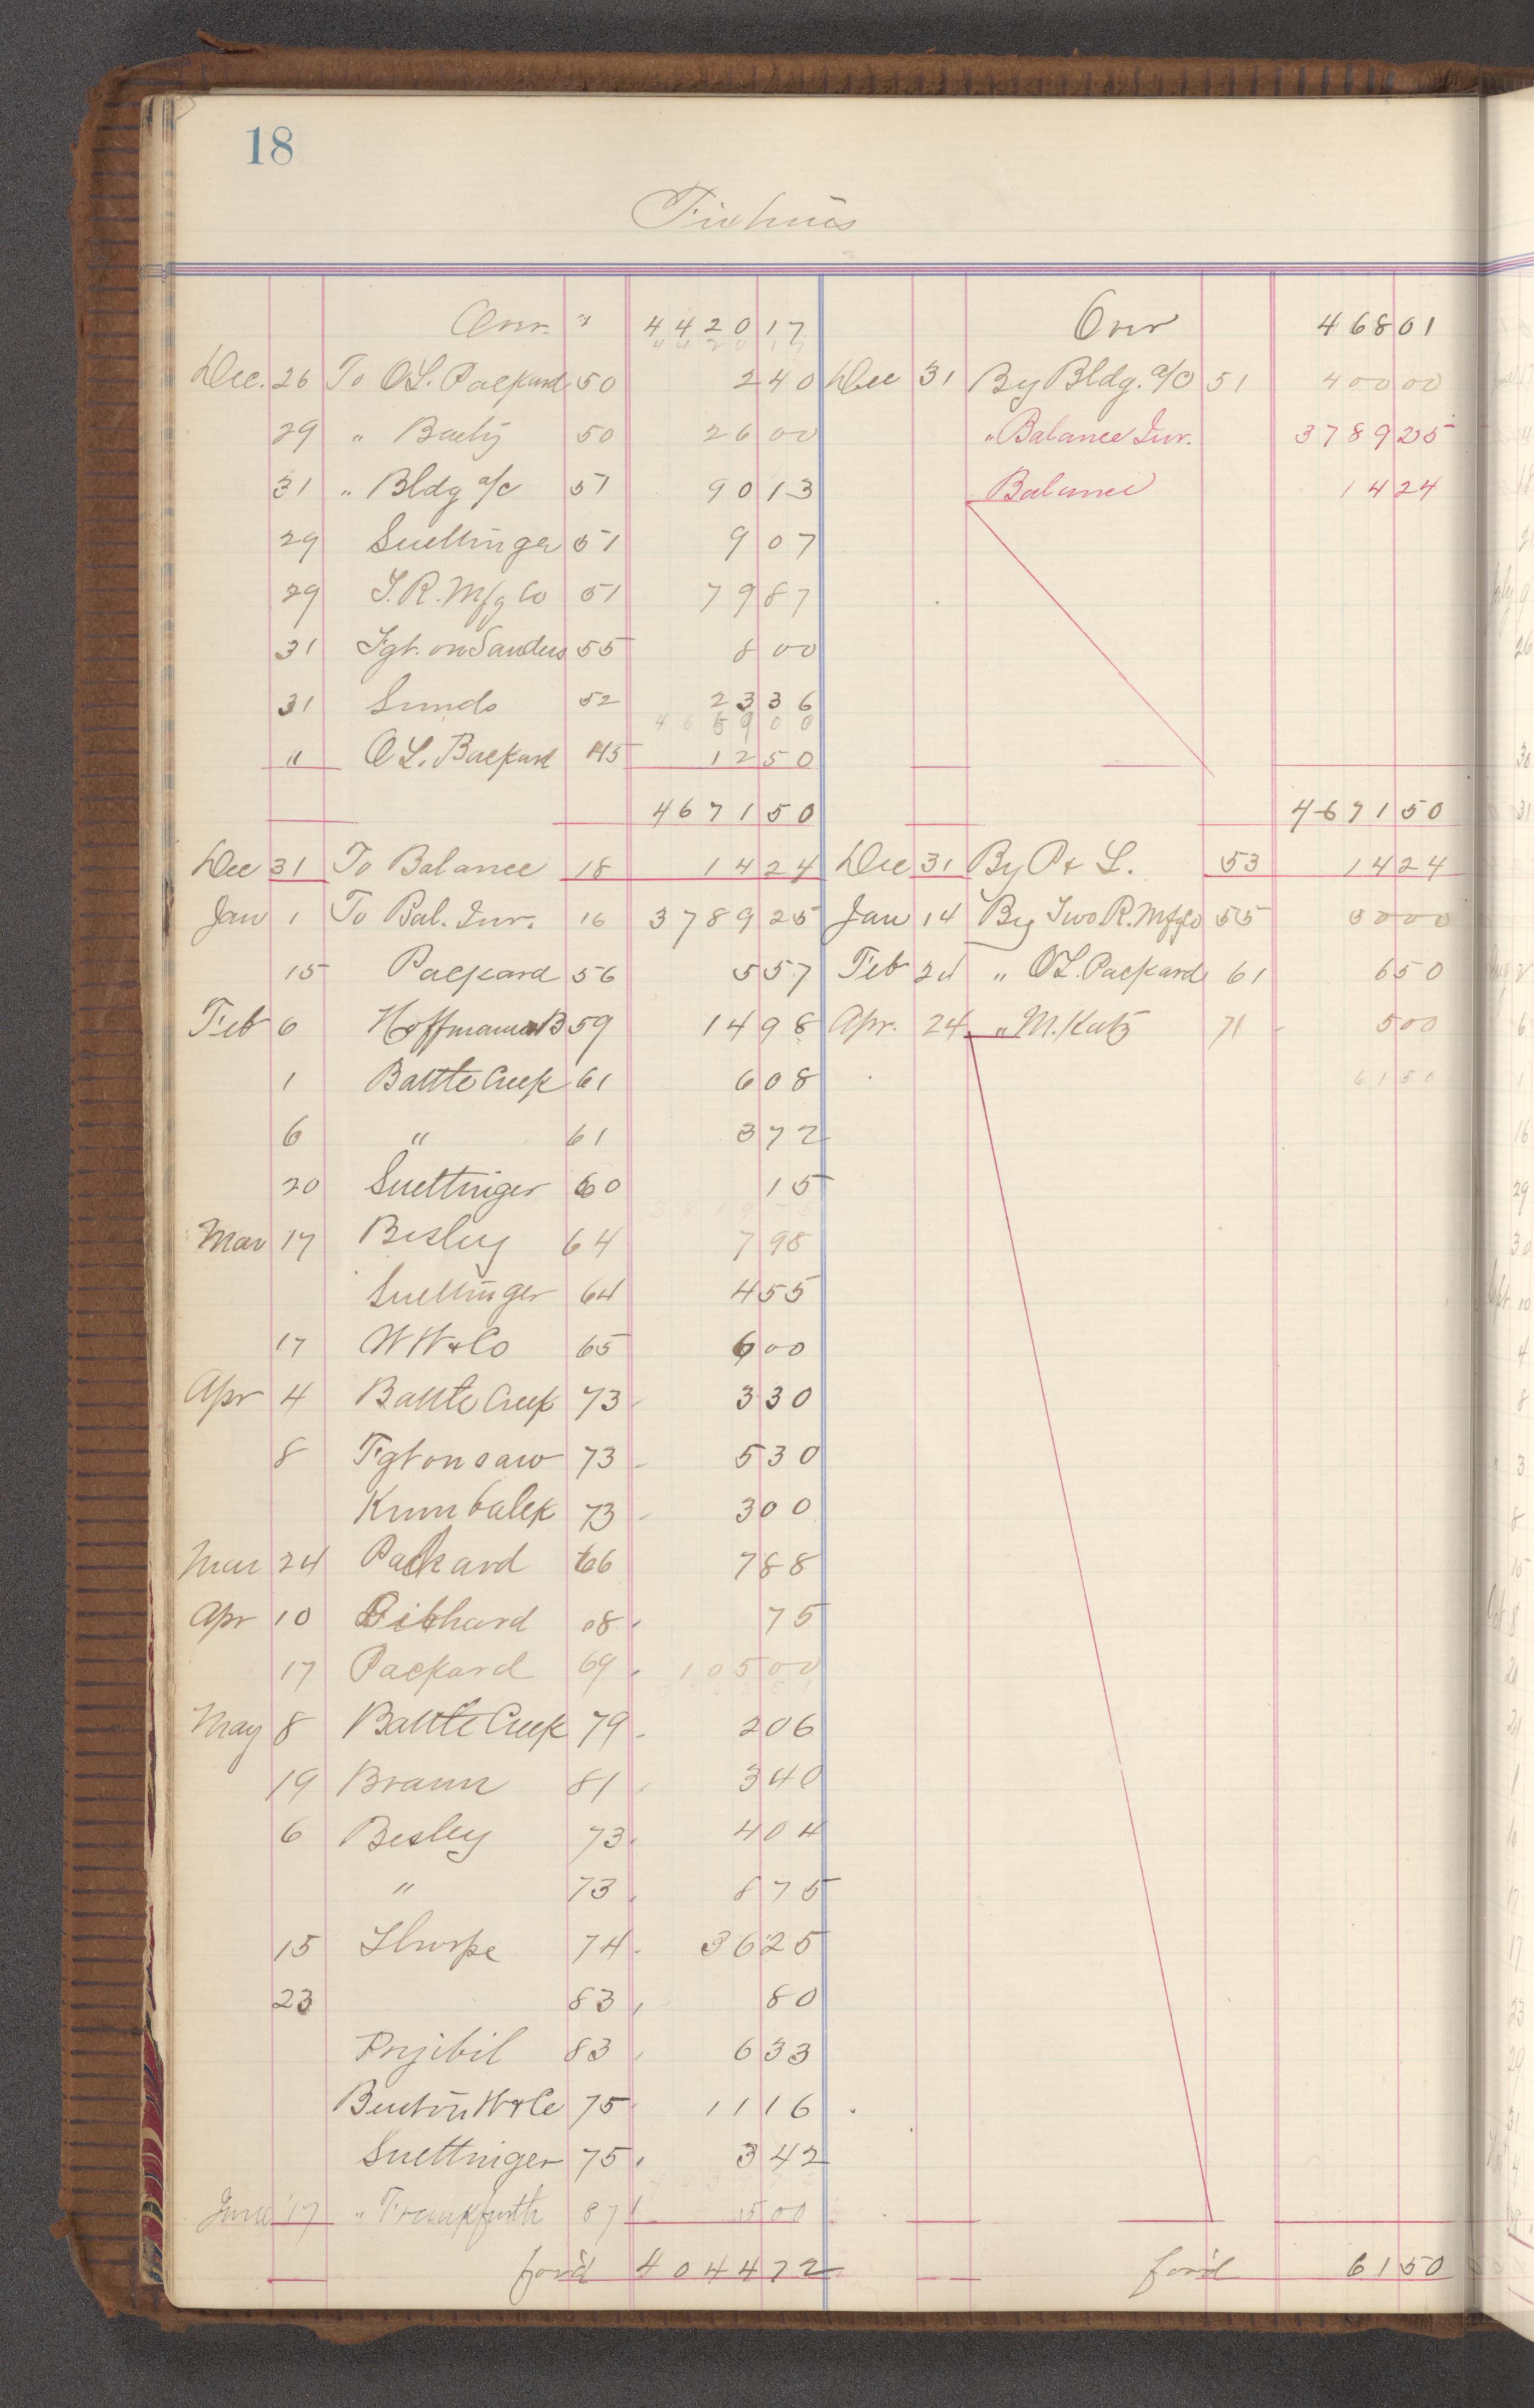 18
Fixtures
Over " 4420 17 Over 468 01
4420 17
Dec. 26 To O.L. Packard 50 2 40 Dec 31 By Bldg. a/c 51 400 00
29 " Badg 50 26 00 " Balance Inv. 3789 25
31 " Bldg a/c 51 90 13 Balance 14 24
29 Suettinger 51 9 07
29 T.R. Mfg Co 51 79 87
31 Fgt. on Sanders 55 8 00
31 Sunds 52 23 36
4659 00
" O L. Packard 45 12 50
4671 50 4671 50
Dec 31 To Balance 18 14 24 Dec 31 By P & L. 53 14 24
Jan 1 To Bal. Inv. 16 3789 25 Jan 14 By Two R. Mfg Co 55 50 00
15 Packard 56 5 57 Feb 24 " O L. Packard 61 6 50
Feb 6 Hoffmann B 59 14 98 Apr. 24 " M. Katz 71 5 00
1 Battle Creek 61 6 08 61 50
6 " 61 3 72
20 Suettinger 60 15
Mar 17 Besley 64 7 98
Suettinger 64 4 55
17 W W & Co 65 6 00
Apr 4 Battle Creek 73 3 30
8 Fgt on saw 73 5 30
Krumbalek 73 3 00
Mar 24 Packard 66 7 88
Apr 10 Diebhard 68 75
17 Packard 69 105 00
May 8 Battle Creek 79 2 06
19 Braun 81 3 40
6 Besley 73 4 04
" 73 8 75
15 Thorpe 74 36 25
23 83 80
Pryibil 83 6 33
Benton W & Co 75 11 16
Suettinger 75 3 42
June 17 " Frankfurth 87 5 00
ford 4044 72 ford 61 50